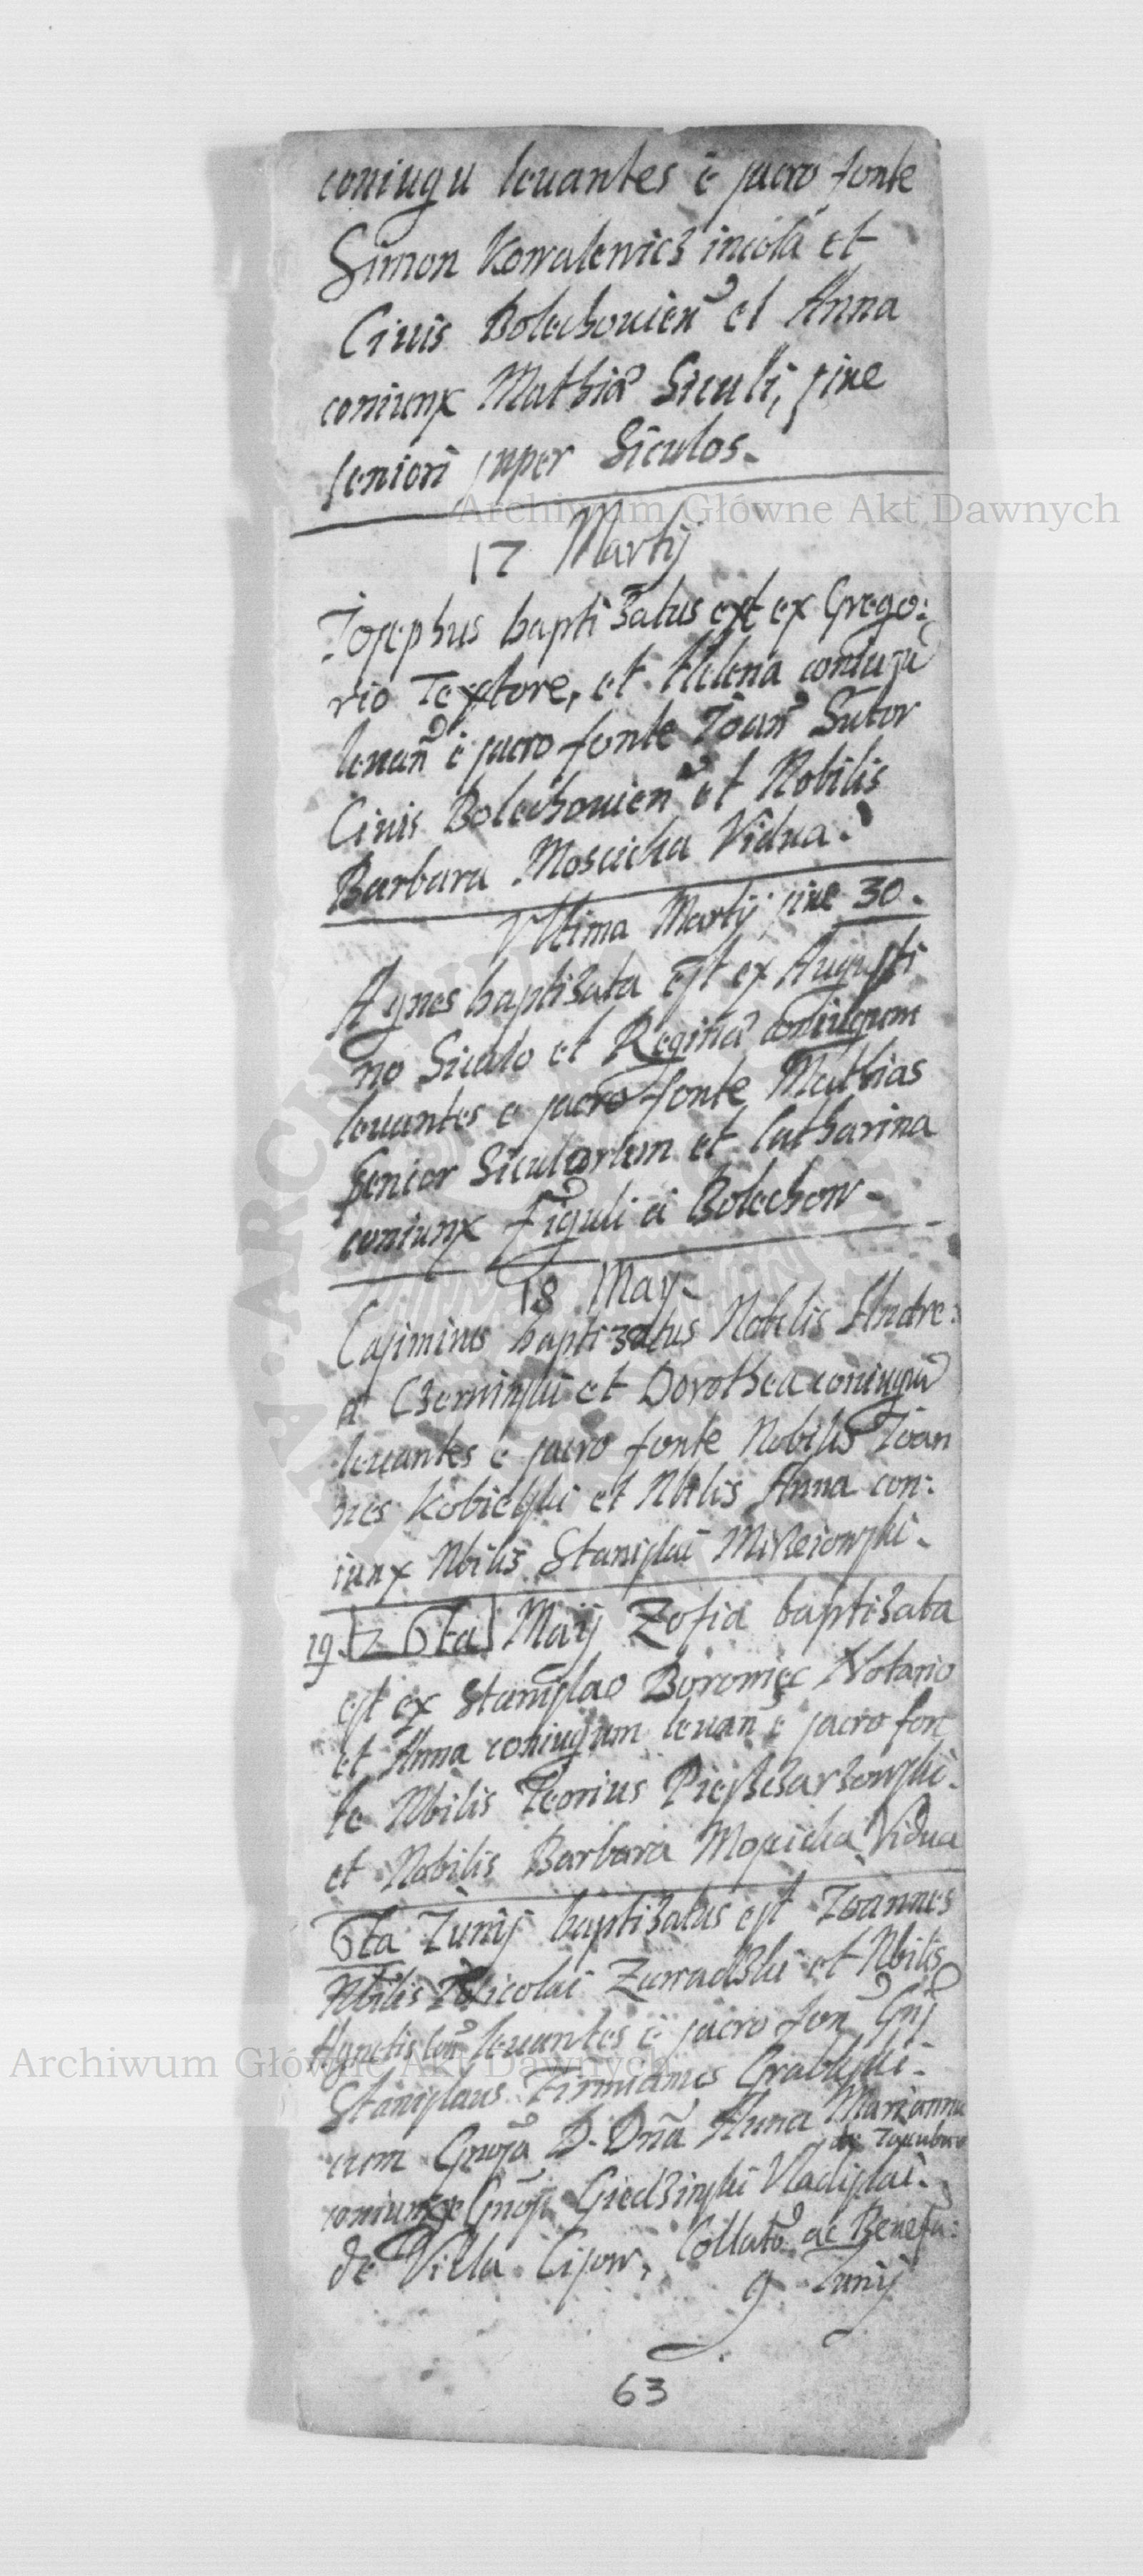 coniugũ leuantes è sacro fonte
Simon Kowalewicz incola et
Ciuis Bolechouien et Anna
coniunx Mathia Siculi, siue
seniori super Siculos.
Archiwum Główne Akt Dawnych
17 Martij
Josephus baptizatus est ex Grego:
rio Textore, et Helena coniugũ
leuañ è sacro fonte Joan Sutor
Ciuis Bolechouien et Nobilis
Barbara Moscicka Vidua.
Vltima Martij siue 30.
Agnes baptizata est ex Augusti
no Siculo et Regina coniugum
leuantes e sacro fonte Mathias
senior Siculorum et Catharina
coniunx Figuli ci Bolechow.
18 May.
Casimirus baptizatus Nobilis Andre:
a Czerwinski et Dorothea coniugũ
leuantes e sacro fonte Nobilis Joan
nes Kobielski et Nbilis Anna con:
iunx Nbilis Stanislai
19. 6ta Maij Zofia baptizata
est ex Stanislao Boroniec Notario
et Anna coniugum leuañ e sacro fon
te Nbilis
et Nobilis Barbara Moscicka Vidua
6ta Junij baptizatus est Joannes
Nbilis Nicolai Zawadzki et Nbilis
Agnetis Con leuantes è sacro fon Gnj
Stanislaus Firmianus Grabski.
cum D. Dña Anna Marianna
de
coniunx Gnosi Giedzinski Vladislai.
de Villa Cisow, Collato ac Benefa:
9 Junij
Archiwum Główne Akt Dawnych
63